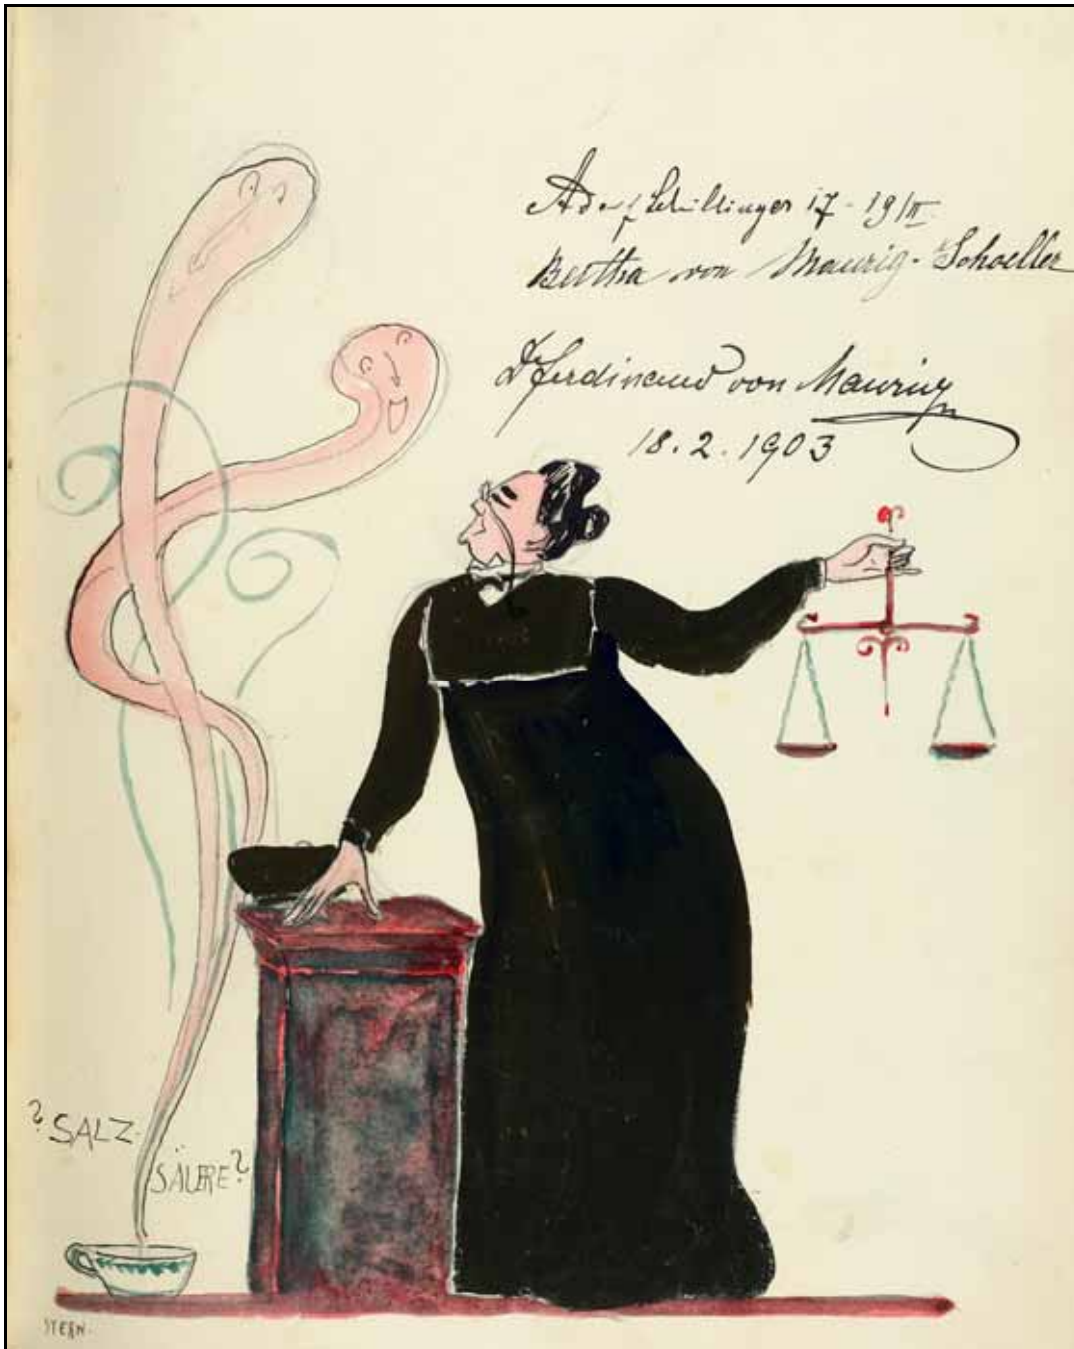 Adolf Schillinger 17 - 19/II
Bertha von Maurig-Schoeller
Dr Ferdinand von Maurig
18.2.1903
? SALZ-
SÄURE?
STERN.